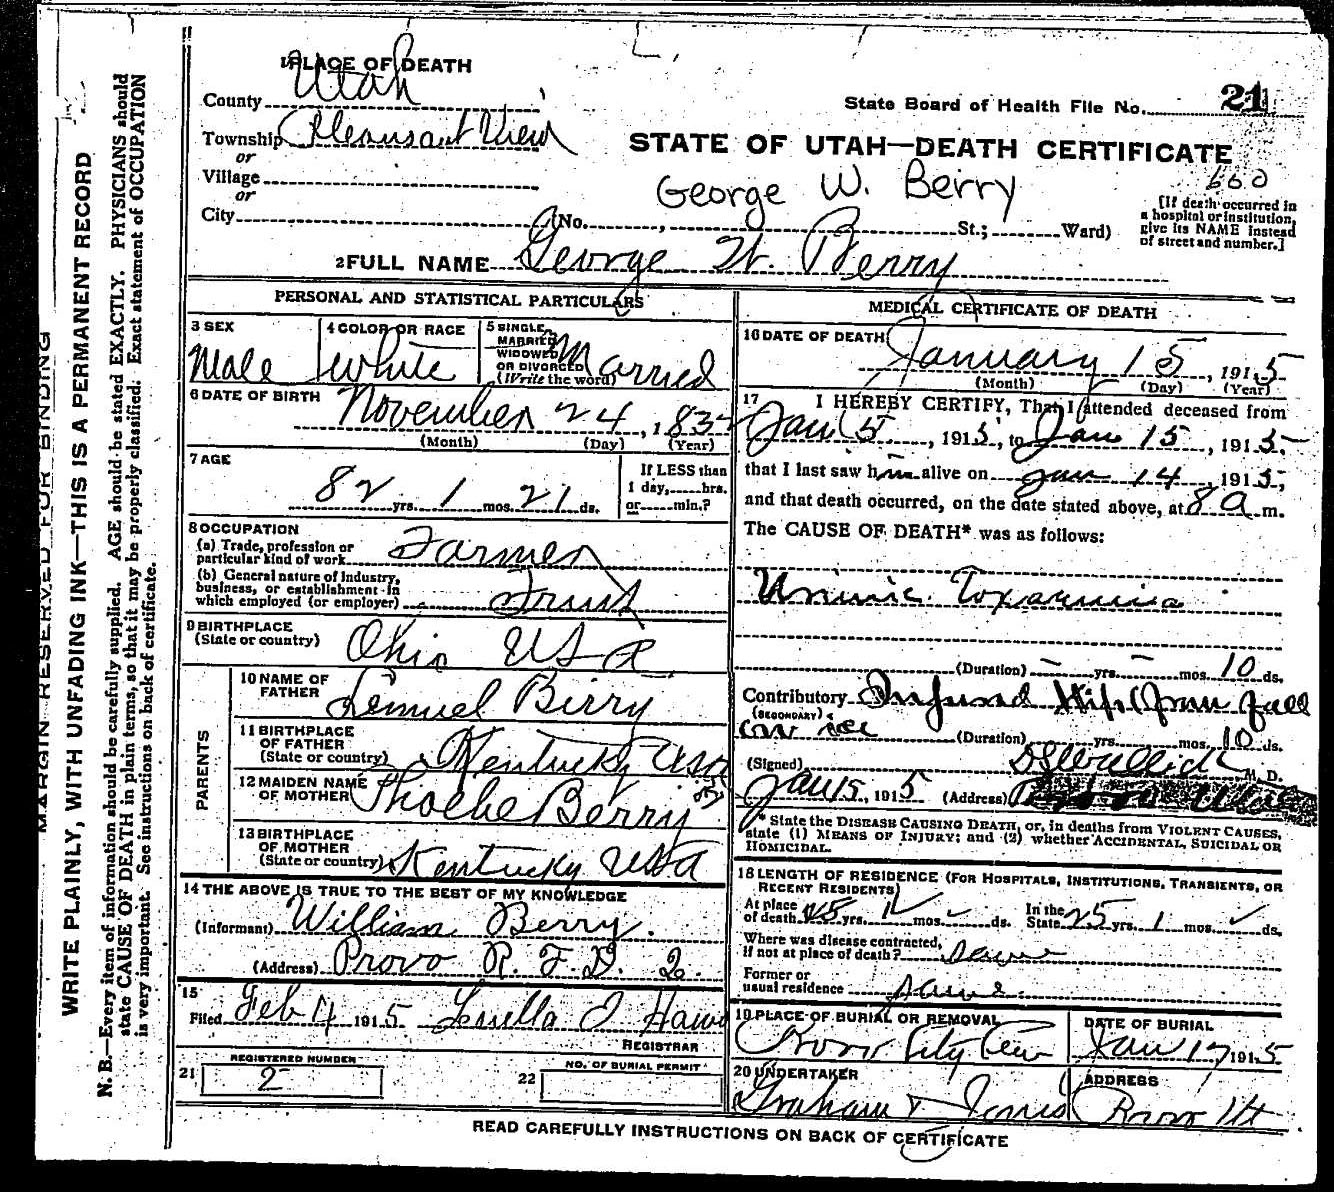 21
1 PLACE OF DEATH
County Utah
State Board of Health File No.
Township Pleasant View
or
STATE OF UTAH—DEATH CERTIFICATE
Village
or
George W. Berry
660
[If death occurred in
a hospital or institution,
give its NAME instead
of street and number.]
City (No. , St.; Ward)
2 FULL NAME George W. Berry
PERSONAL AND STATISTICAL PARTICULARS
3 SEX
Male
4 COLOR OR RACE
White
5 SINGLE,
MARRIED,
WIDOWED,
OR DIVORCED
(Write the word)
Married
6 DATE OF BIRTH
November 24, 1832
(Month) (Day) (Year)
7 AGE
82 yrs. 1 mos. 21 ds.
If LESS than
1 day, hrs.
or min.?
8 OCCUPATION
(a) Trade, profession or
particular kind of work Farmer
(b) General nature of Industry,
business, or establishment in
which employed (or employer) Fruit
9 BIRTHPLACE
(State or country)
Ohio USA
PARENTS
10 NAME OF
FATHER
Lemuel Birry
11 BIRTHPLACE
OF FATHER
(State or country)
Kentucky USA
12 MAIDEN NAME
OF MOTHER
Phoebe Berry
13 BIRTHPLACE
OF MOTHER
(State or country)
Kentucky USA
14 THE ABOVE IS TRUE TO THE BEST OF MY KNOWLEDGE
(Informant) William Berry.
(Address) Provo R. F. D. 2.
15
Filed Feb 4 1915
REGISTRAR
REGISTERED NUMBER
21 2
NO. OF BURIAL PERMIT
22
MEDICAL CERTIFICATE OF DEATH
16 DATE OF DEATH
January 15, 1915
(Month) (Day) (Year)
17 I HEREBY CERTIFY, That I attended deceased from
Jan 5, 1915, to Jan 15, 1915.
that I last saw him alive on Jan 14, 1915,
and that death occurred, on the date stated above, at 8 a m.
The CAUSE OF DEATH* was as follows:
(Duration) - yrs. - mos. 10 ds.
Contributory Injured Hip (from fall
(SECONDARY)
on ice
(Duration) yrs. mos. 10 ds.
(Signed) M. D.
Jan 15, 1915 (Address)
* State the DISEASE CAUSING DEATH, or, in deaths from VIOLENT CAUSES,
state (1) MEANS OF INJURY; and (2) whether ACCIDENTAL, SUICIDAL OR
HOMICIDAL.
18 LENGTH OF RESIDENCE (FOR HOSPITALS, INSTITUTIONS, TRANSIENTS, OR
RECENT RESIDENTS)
At place
of death yrs. mos. ds.
In the
State 25 yrs. 1 mos. ds.
Where was disease contracted,
if not at place of death? Same
Former or
usual residence Same.
19 PLACE OF BURIAL OR REMOVAL
Provo City Cem
DATE OF BURIAL
Jan 17 1915
20 UNDERTAKER
Graham & Jones
ADDRESS
Provo Ut
READ CAREFULLY INSTRUCTIONS ON BACK OF CERTIFICATE
MARGIN RESERVED FOR BINDING
WRITE PLAINLY, WITH UNFADING INK—THIS IS A PERMANENT RECORD
N. B.—Every item of information should be carefully supplied. AGE should be stated EXACTLY. PHYSICIANS should
state CAUSE OF DEATH in plain terms, so that it may be properly classified. Exact statement of OCCUPATION
is very important. See instructions on back of certificate.